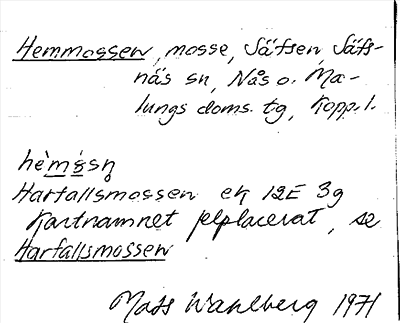 Hemmossen, mosse, Säfsen, Säfs-
näs sn, Nås o. Ma-
lungs doms. tg, Kopp. l.
Harfallsmossen ek 12E 3g
Kartnamnet felplacerat, se
Harfallsmossen
Mats Wahlberg 1971